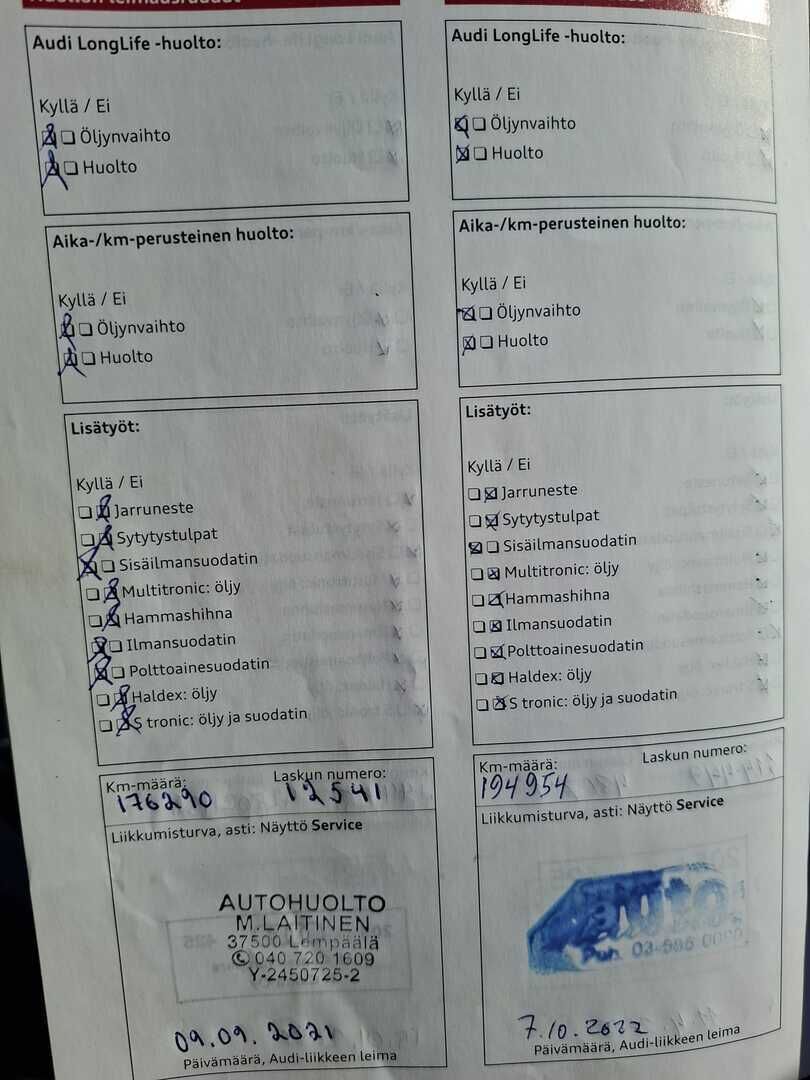 Audi LongLife -huolto:
Kyllä / Ei
Öljynvaihto
Huolto
Aika-/km-perusteinen huolto:
Kyllä / Ei
Öljynvaihto
Huolto
Lisätyöt:
Kyllä / Ei
Jarruneste
Sytytystulpat
Sisäilmansuodatin
Multitronic: öljy
Hammashihna
Ilmansuodatin
Polttoainesuodatin
Haldex: öljy
S tronic: öljy ja suodatin
Km-määrä: Laskun numero:
176290 12541
Liikkumisturva, asti: Näyttö Service
AUTOHUOLTO
M.LAITINEN
37500 Lempäälä
040 720 1609
Y-2450725-2
09.09.2021
Päivämäärä, Audi-liikkeen leima
Audi LongLife -huolto:
Kyllä / Ei
Öljynvaihto
Huolto
Aika-/km-perusteinen huolto:
Kyllä / Ei
Öljynvaihto
Huolto
Lisätyöt:
Kyllä / Ei
Jarruneste
Sytytystulpat
Sisäilmansuodatin
Multitronic: öljy
Hammashihna
Ilmansuodatin
Polttoainesuodatin
Haldex: öljy
S tronic: öljy ja suodatin
Km-määrä: Laskun numero:
194954
Liikkumisturva, asti: Näyttö Service
Puh. 03-
7.10.2022
Päivämäärä, Audi-liikkeen leima